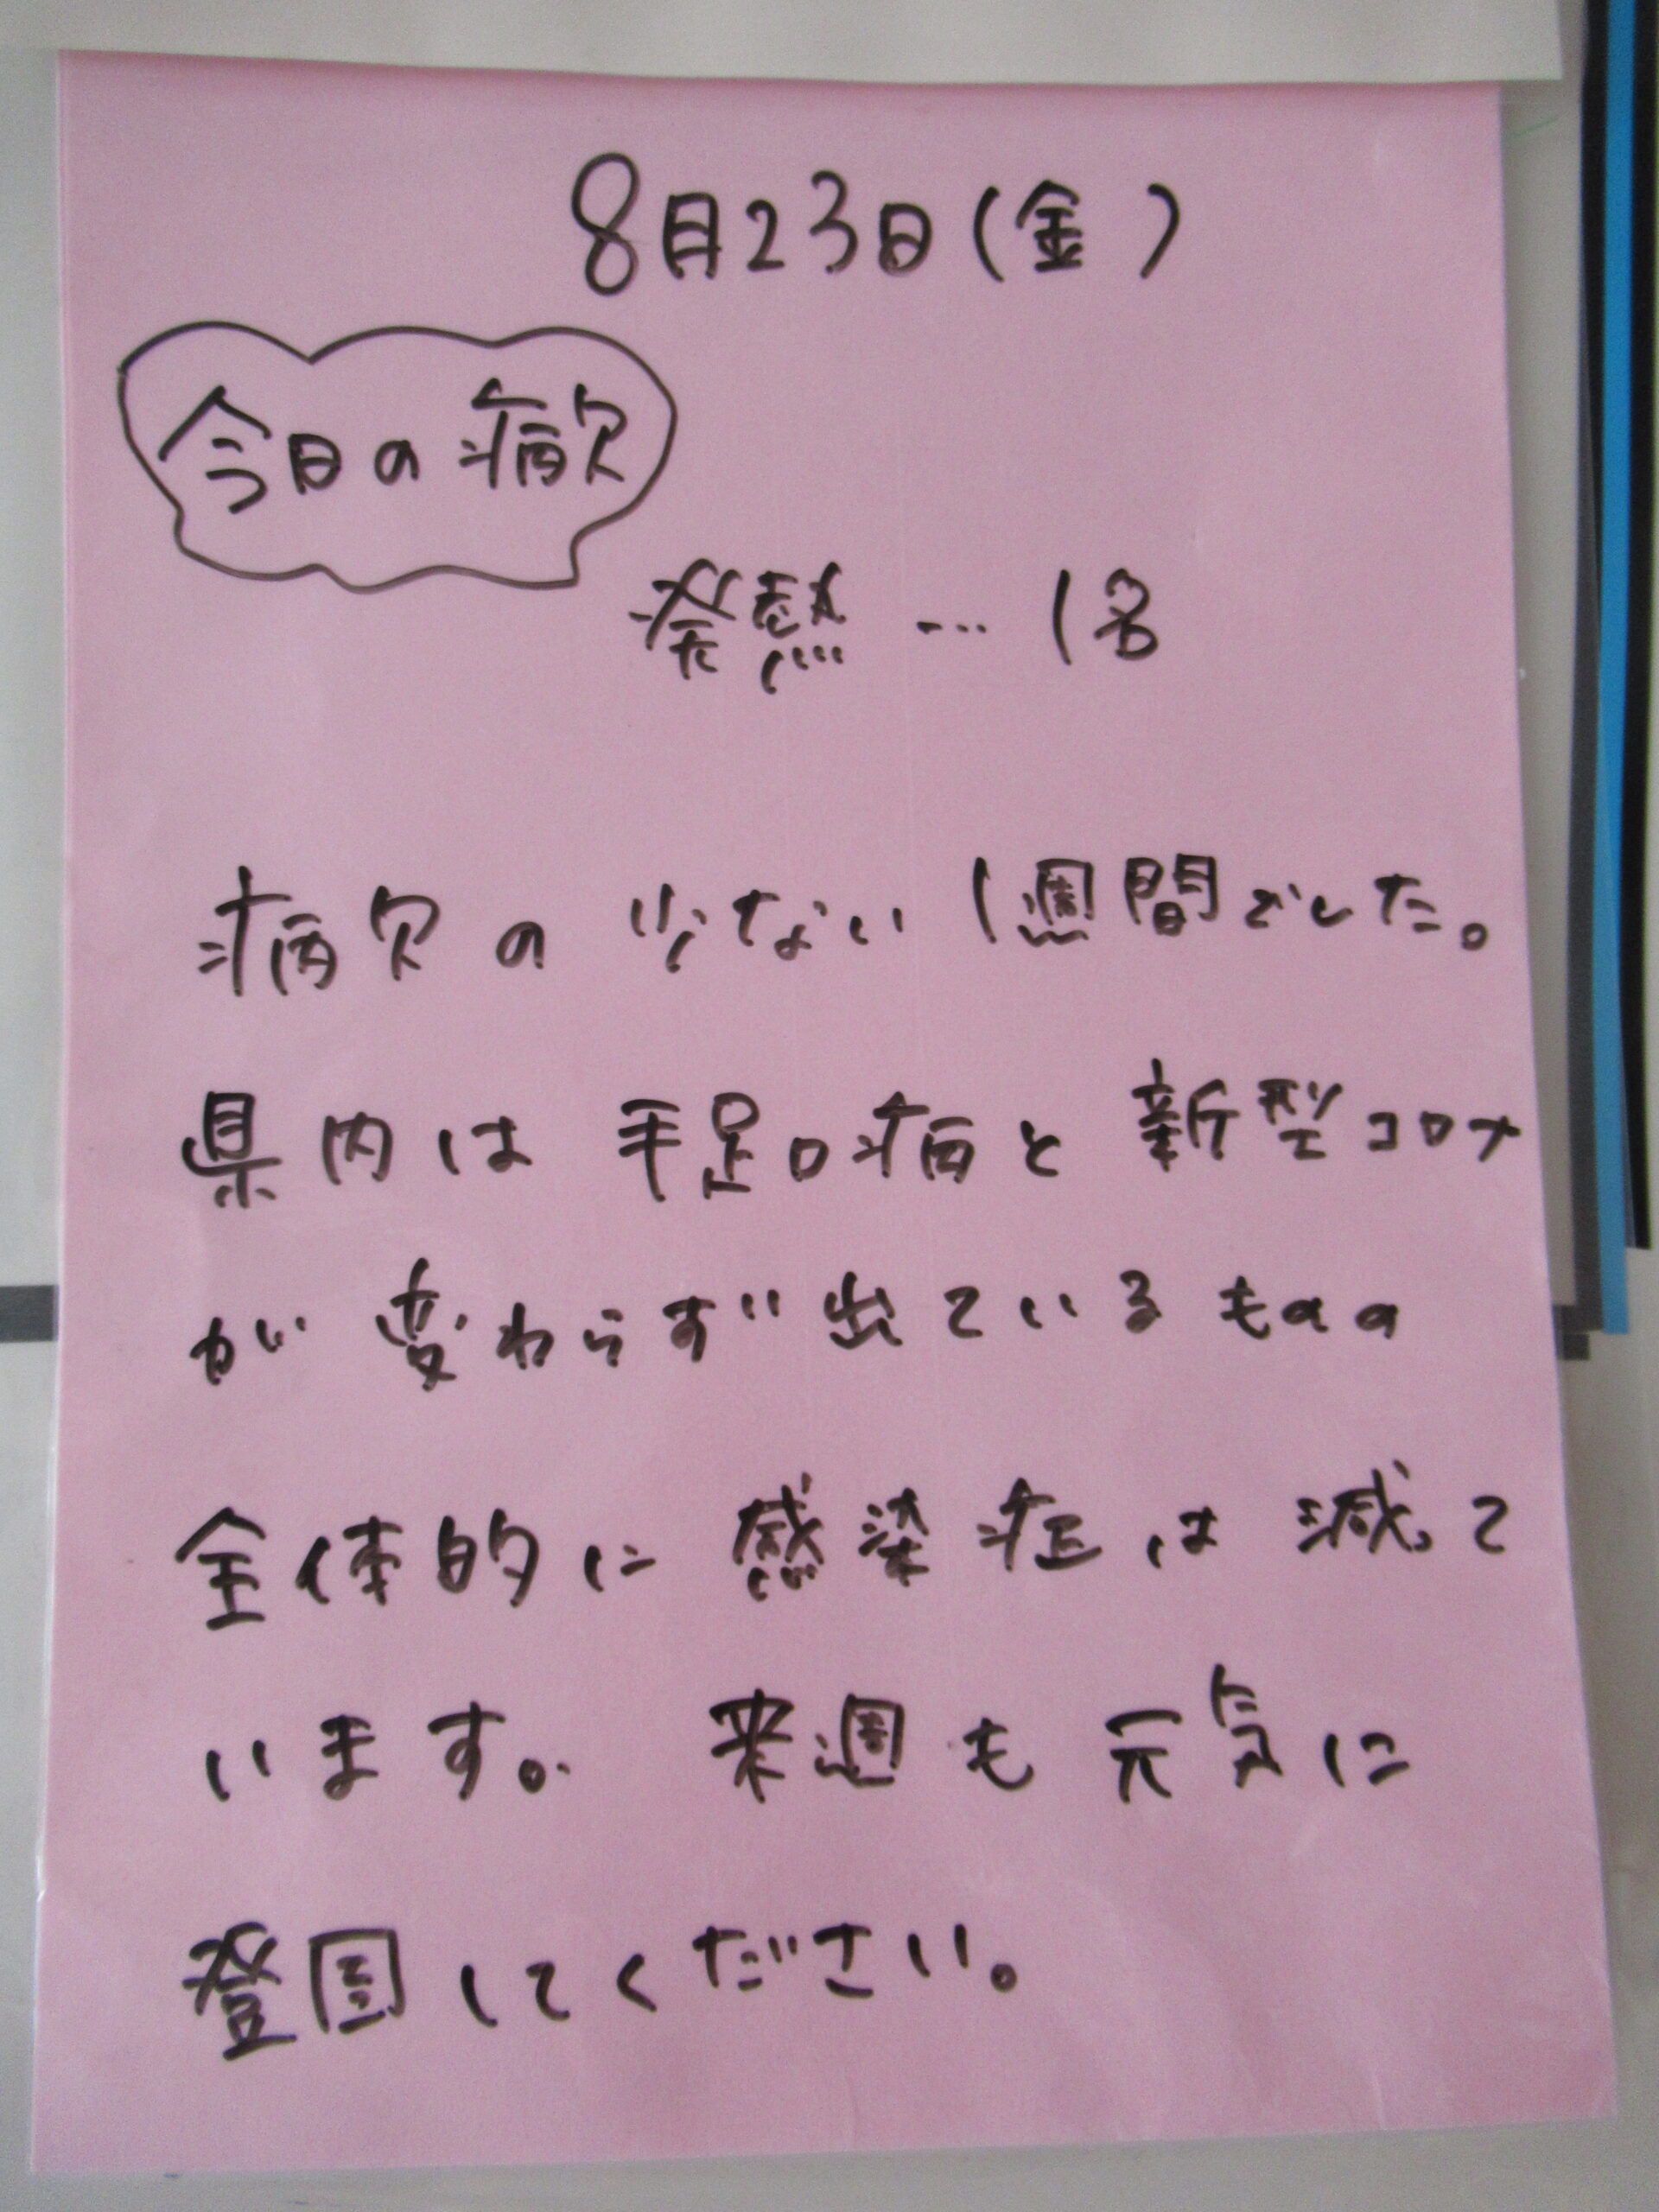 8月23日(金)
今日の病欠
発熱…1名
病欠の少ない1週間でした。
県内は手足口病と新型コロナ
が変わらず出ているものの
全体的に感染症は減って
います。来週も元気に
登園してください。